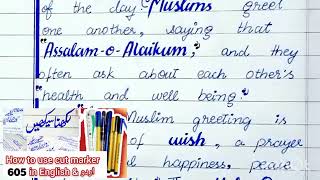 of the day. Muslims greet
one another, saying that
"Assalam-o-Alaikum", and they
often ask about each other's
health and well being.
Muslim greeting is
of wish, a prayer
happiness, peace
لکھنا سیکھیں
How to use cut marker
605 in English & اردو